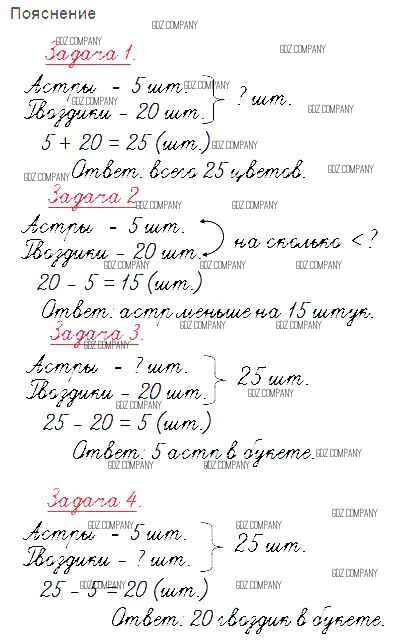 Пояснение
GDZ.COMPANY
GDZ.COMPANY
Задача 1.
GDZ.COMPANY
Астры - 5 шт. GDZ.COMPANY
GDZ.COMPANY
Гвоздики - 20 шт. } ? шт.
GDZ.COMPANY
5 + 20 = 25 (шт.) GDZ.COMPANY
GDZ.COMPANY Ответ: всего 25 цветов. GDZ.COMPANY
Задача 2 GDZ.COMPANY GDZ.COMPANY
Астры - 5 шт.
Гвоздики - 20 шт. на сколько < ?
GDZ.COMPANY GDZ.COMPANY GDZ.COMPANY
20 - 5 = 15 (шт.)
Ответ: астр меньше на 15 штук.
GDZ.COMPANY GDZ.COMPANY
Задача 3
GDZ.COMPANY
Астры - ? шт.
Гвоздики - 20 шт. } 25 шт.
GDZ.COMPANY
GDZ.COMPANY
25 - 20 = 5 (шт.)
Ответ: 5 астр в букете. GDZ.COMPANY
GDZ.COMPANY GDZ.COMPANY
Задача 4.
GDZ.COMPANY
GDZ.COMPANY GDZ.COMPANY
Астры - 5 шт.
Гвоздики - ? шт. } 25 шт.
GDZ.COMPANY
25 - 5 = 20 (шт.)
GDZ.COMPANY GDZ.COMPANY
Ответ: 20 гвоздик в букете.